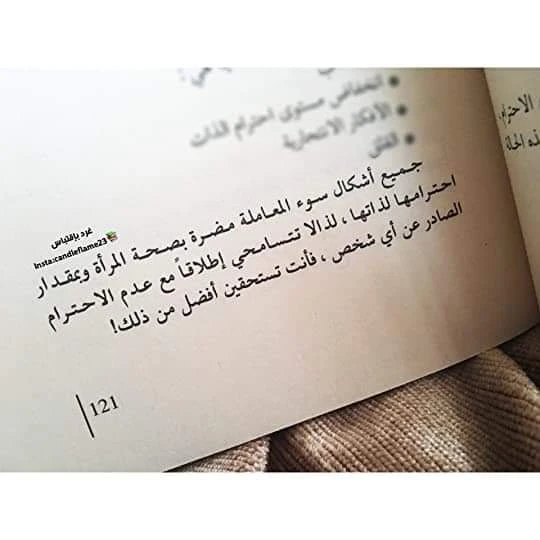 انخفاض مستوى احترام الذات
الأفكار الانتحارية
القلق
جميع أشكال سوء المعاملة مضرة بصحة المرأة وبمقدار
احترامها لذاتها ، لذالا تتسامحي إطلاقاً مع عدم الاحترام
الصادر عن أي شخص ، فأنت تستحقين أفضل من ذلك!
121
غرد بإقتباس
Insta:candleflame23
الاحترام
ذه الحالة